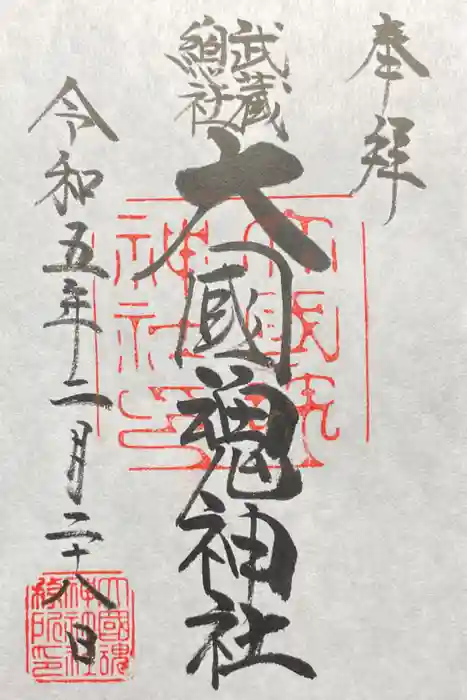 奉拝
武蔵
総社
大國魂神社
令和五年二月二十八日
大國魂
神社印
大國魂
神社社
務所印